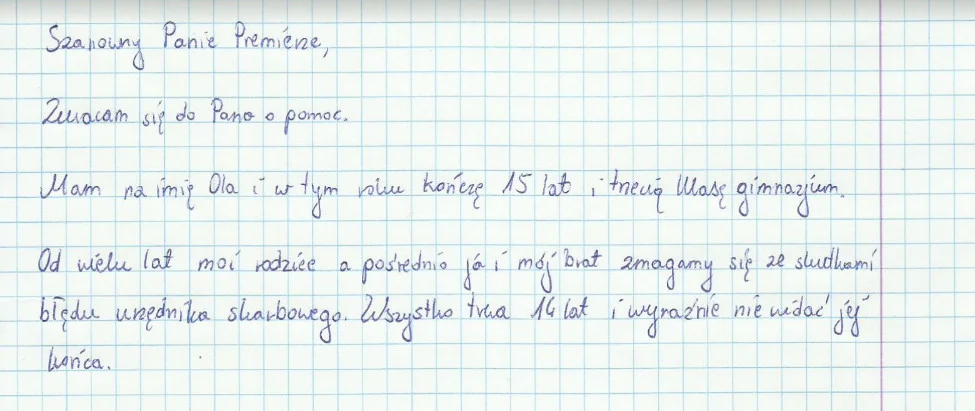 Szanowny Panie Premierze,
Zwracam się do Pana o pomoc.
Mam na imię Ola i w tym roku kończę 15 lat i trzecią klasę gimnazjum.
Od wielu lat moi rodzice a pośrednio ja i mój brat zmagamy się ze skutkami
błędu urzędnika skarbowego. Wszystko trwa 14 lat i wyraźnie nie widać jej
końca.